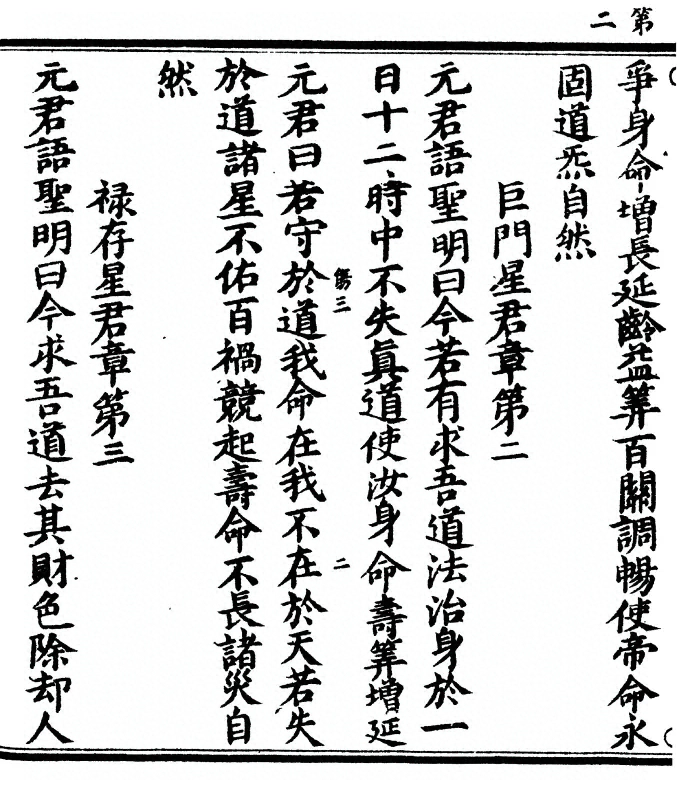 第二
爭身命增長延齡益筭百關調暢使帝命永
固道炁自然
巨門星君章第二
元君語聖明曰今若有求吾道法治身於一
日十二時中不失真道使汝身命壽筭增延
傷三
二
元君曰若守於道我命在我不在於天若失
於道諸星不佑百禍競起壽命不長諸災自
然
禄存星君章第三
元君語聖明曰今求吾道去其財色除却人